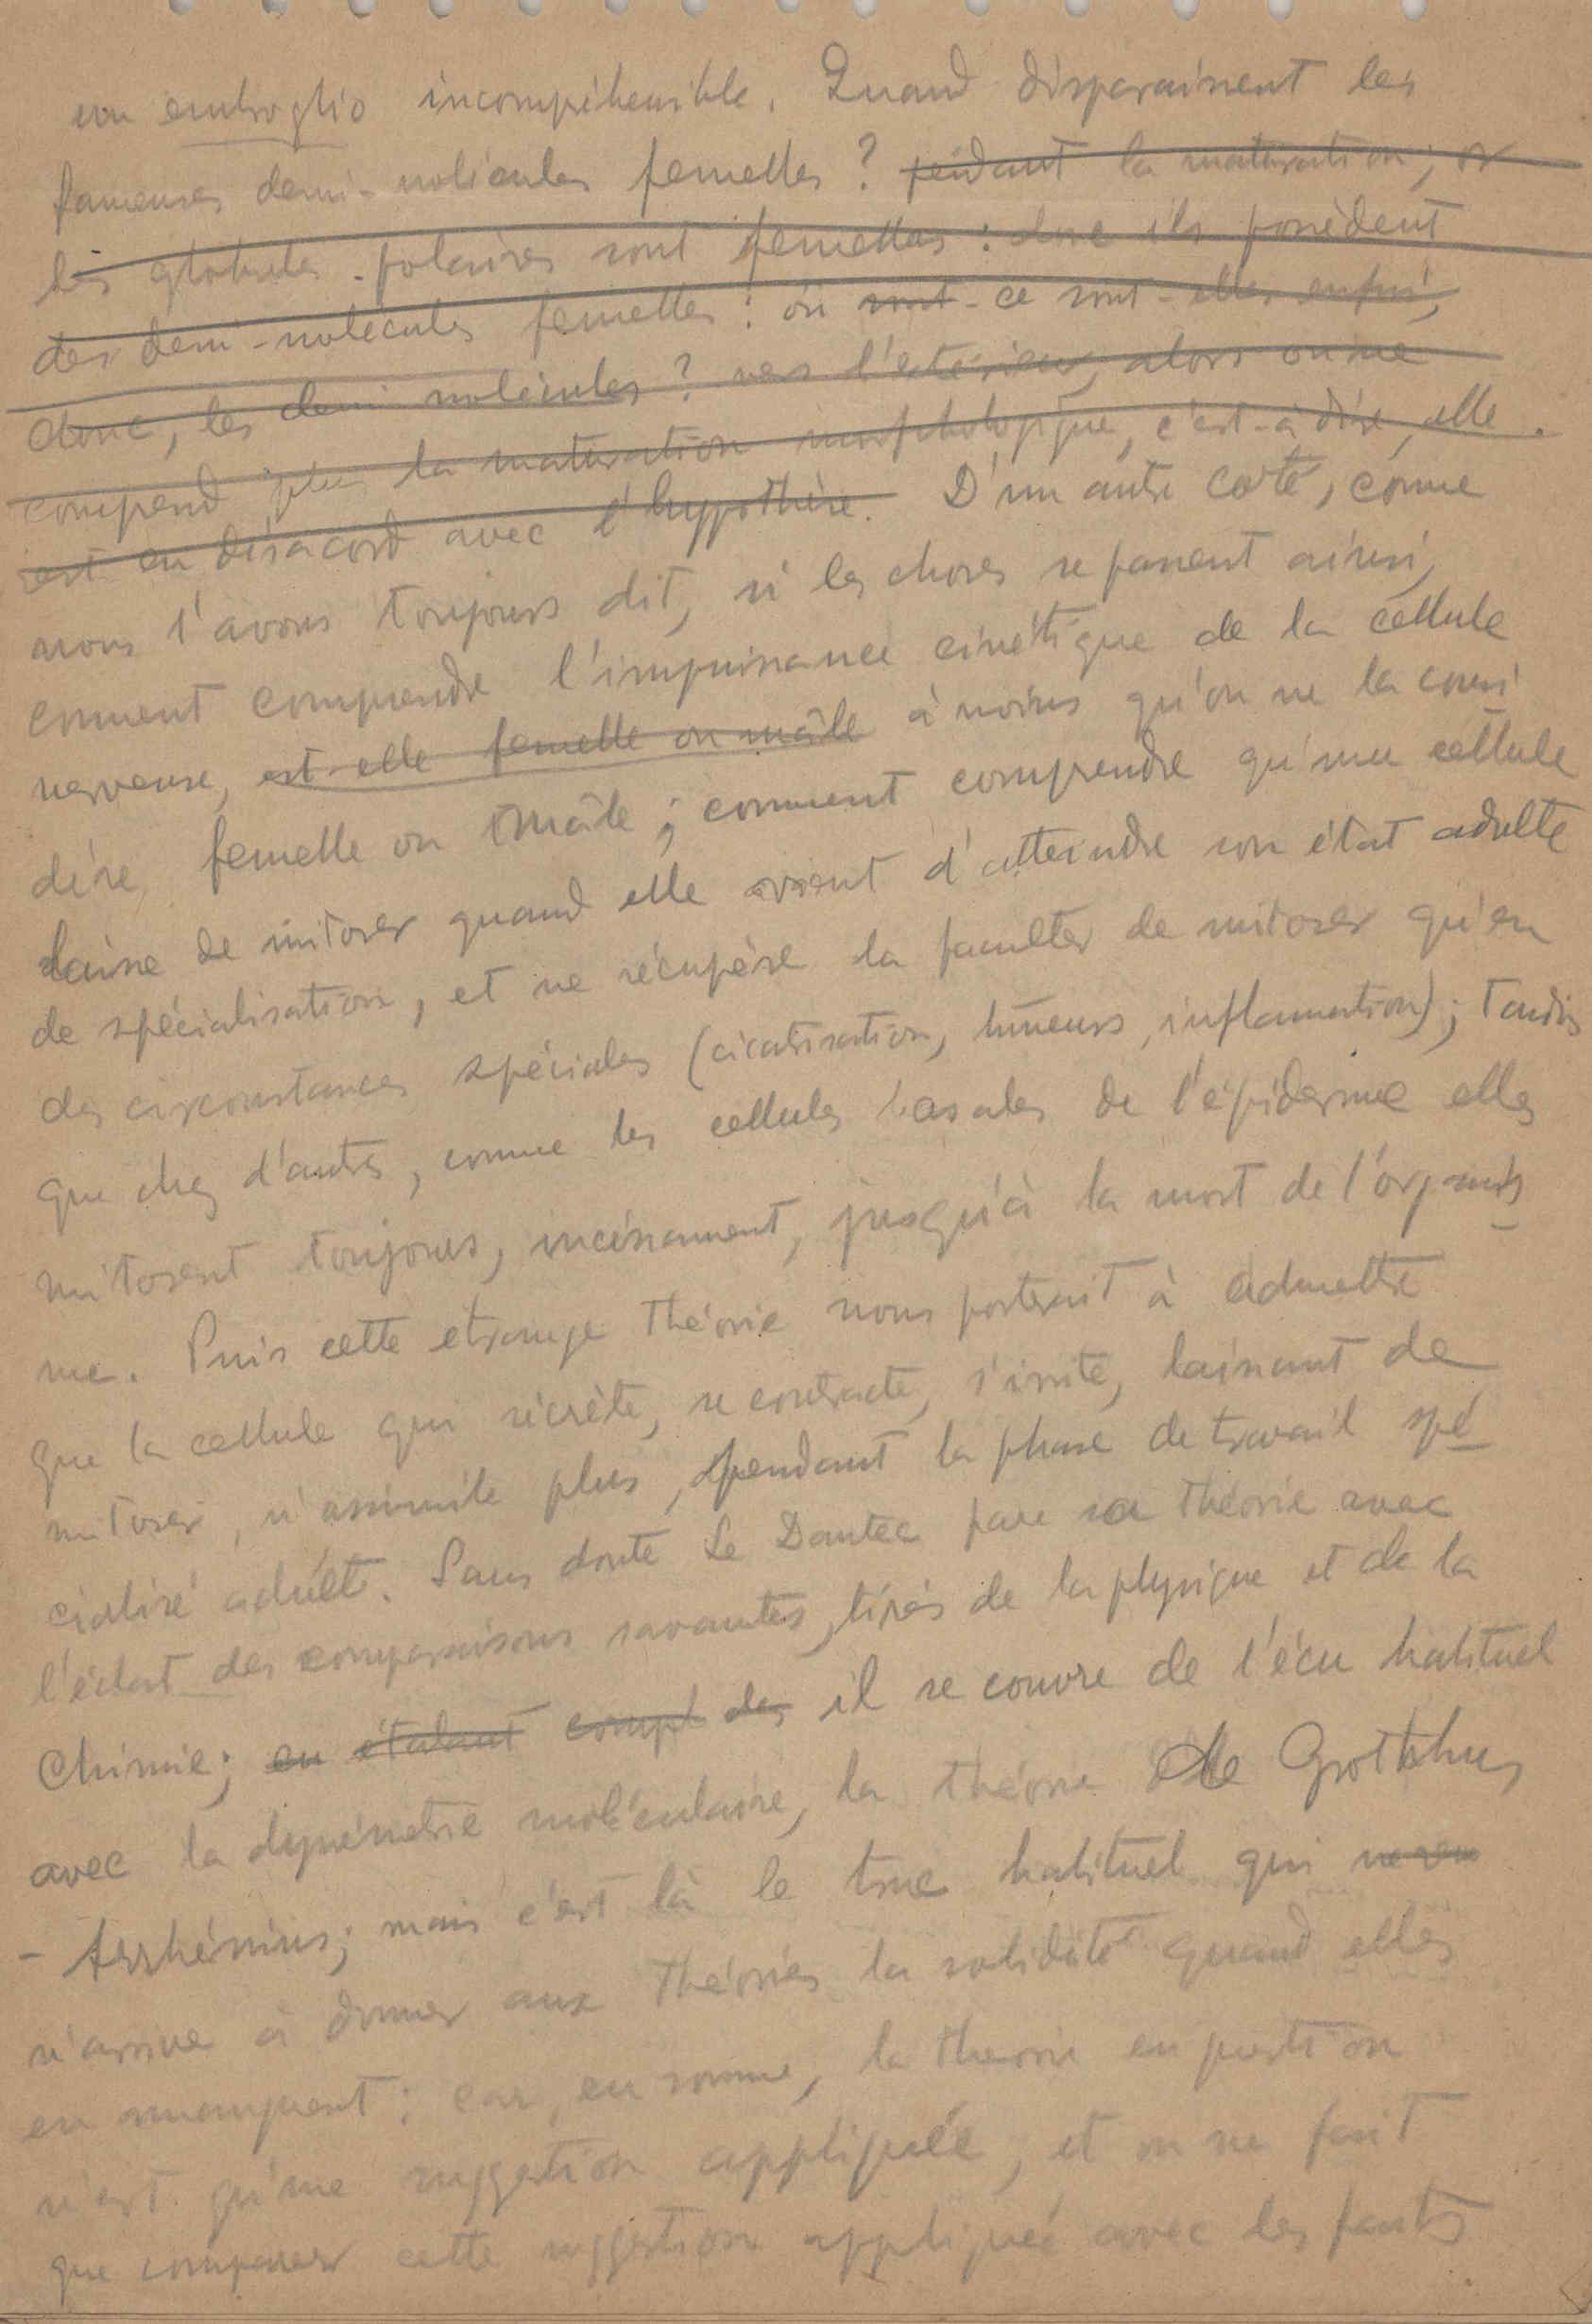 un embroglio incompréhensible. Quand disparaissent les
fameuses demi-molécules femelles ? pendant la maturation ; or
les globules polaires sont femelles : donc ils possèdent
des demi-molécules femelles : où sont-ce sont-elles enfui,
donc, les demi molécules ? vers l'extérieur, alors on ne
comprend plus la maturation morphologique, c'est-à dire, elle
est en désacord avec l'hyppothèse. D'un autre coté, come
nous l'avons toujours dit, si les choses se passent ainsi,
coment comprendre l'impuissance cinétique de la cellule
nerveuse, est-elle femelle ou mâle à moins qu'on ne la consi
dére femelle ou mâle ; comment comprendre qu'une cellule
laisse de mitoser quand elle vient d'atteindre son état adulte
de spécialisation, et ne récupère la faculter de mitoser qu'en
des circonstances spéciales (cicatrisation, tumeurs, inflammation) ; tandis
que chez d'autres, comme les cellules basales de l'épiderme elles
mitosent toujours, incessament, jusqu'à la mort de l'organis
me. Puis cette etrange théorie nous porterait à admettre
que la cellule qui sécrète, se contracte, s'irrite, laissant de
mitoser, n'assimile plus, pendant la phase de travail spé
cialisé adulte. Sans doute Le Dantec pare sa théorie avec
l'éclat des comparaisons savantes, tirés de la physique et de la
Chimie ; en étalant compl des il se couvre de l'écu habituel
avec la dyssimetrie moléculaire, la théorie de Grotthus
- Arrhénius ; mais c'est là le truc habituel qui
n'arrive à donner aux théories la solidité quand elles
en manquent : car, en somme, la theorie en question
n'est qu'une suggestion appliquée, et on ne fait
que comparer cette suggestion appliquée avec les faits